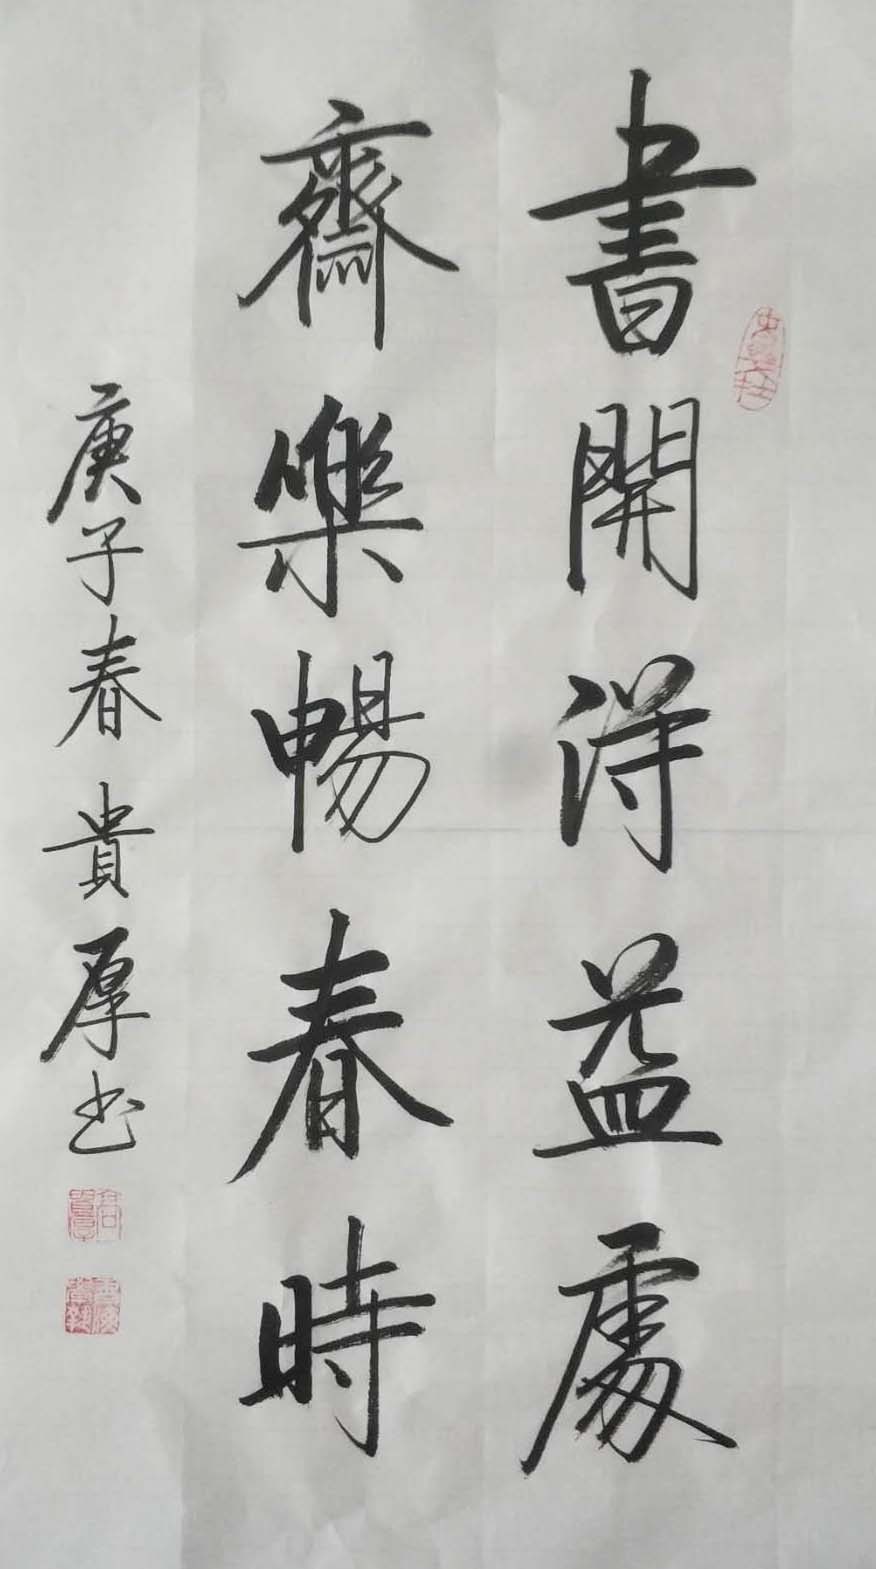 書開得益處
齋樂暢春時
庚子春 貴厚书